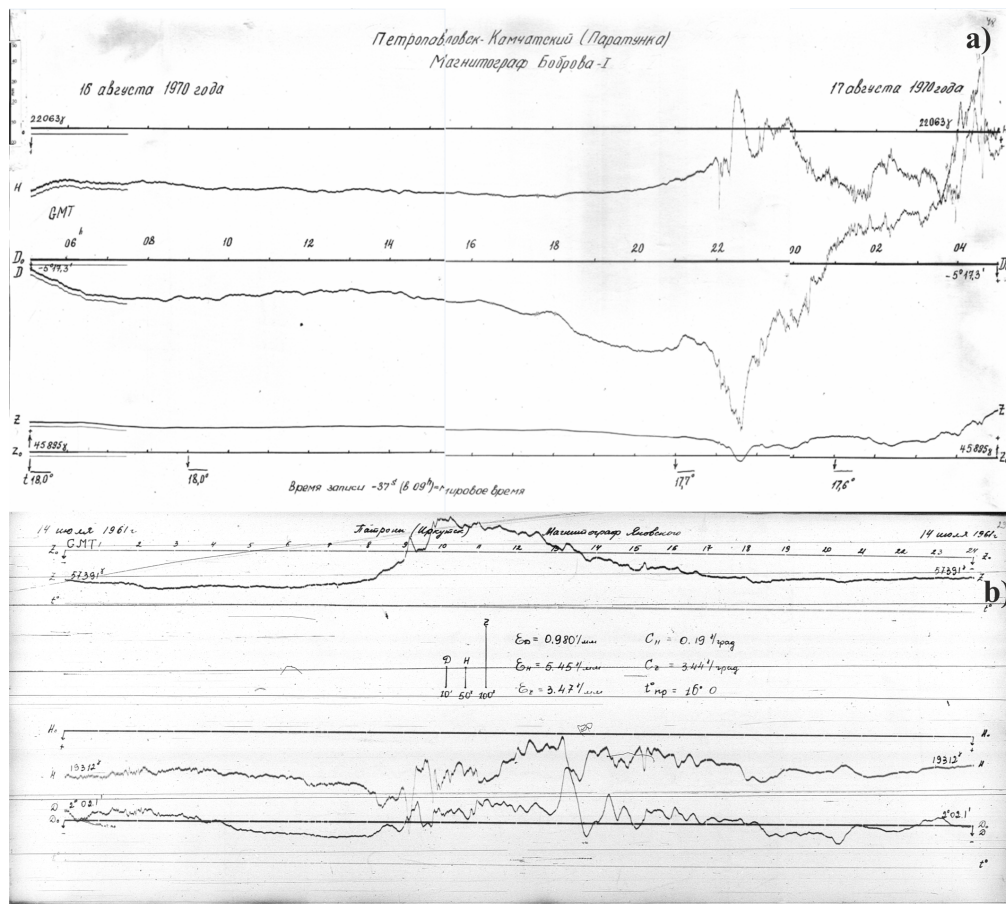 a)
Петропавловск-Камчатский (Паратунка)
Магнитограф Боброва-I
16 августа 1970 года
17 августа 1970 года
22063γ
22063γ
H
GMT
06ʰ 08 10 12 14 16 18 20 22 00 02 04
D₀
D
-5°17,3'
-5°17,3'
Z
Z
Z₀
45895γ
45895γ
t 18,0°
18,0°
17,7°
17,6°
Время записи -37ˢ (в 09ʰ)=мировое время
14 июля 1961г
Патроны (Иркутск)
Магнитограф Яновского
14 июля 1961г
GMT 1 2 3 4 5 6 7 8 9 10 11 12 13 14 15 16 17 18 19 20 21 22 23 24
Z₀
Z₀
Z
57391γ
57391γ
Z
b)
t°
t°
Z
D H
10' 50γ 100γ
ED = 0.980'/мм
CH = 0.19γ/град
EH = 5.45γ/мм
CZ = 3.44γ/град
EZ = 3.47γ/мм
t°пр = 16°0
H₀
H₀
H
19312γ
19312γ
H
D
2°02.1'
2°02.1'
D₀
D₀
D
t°